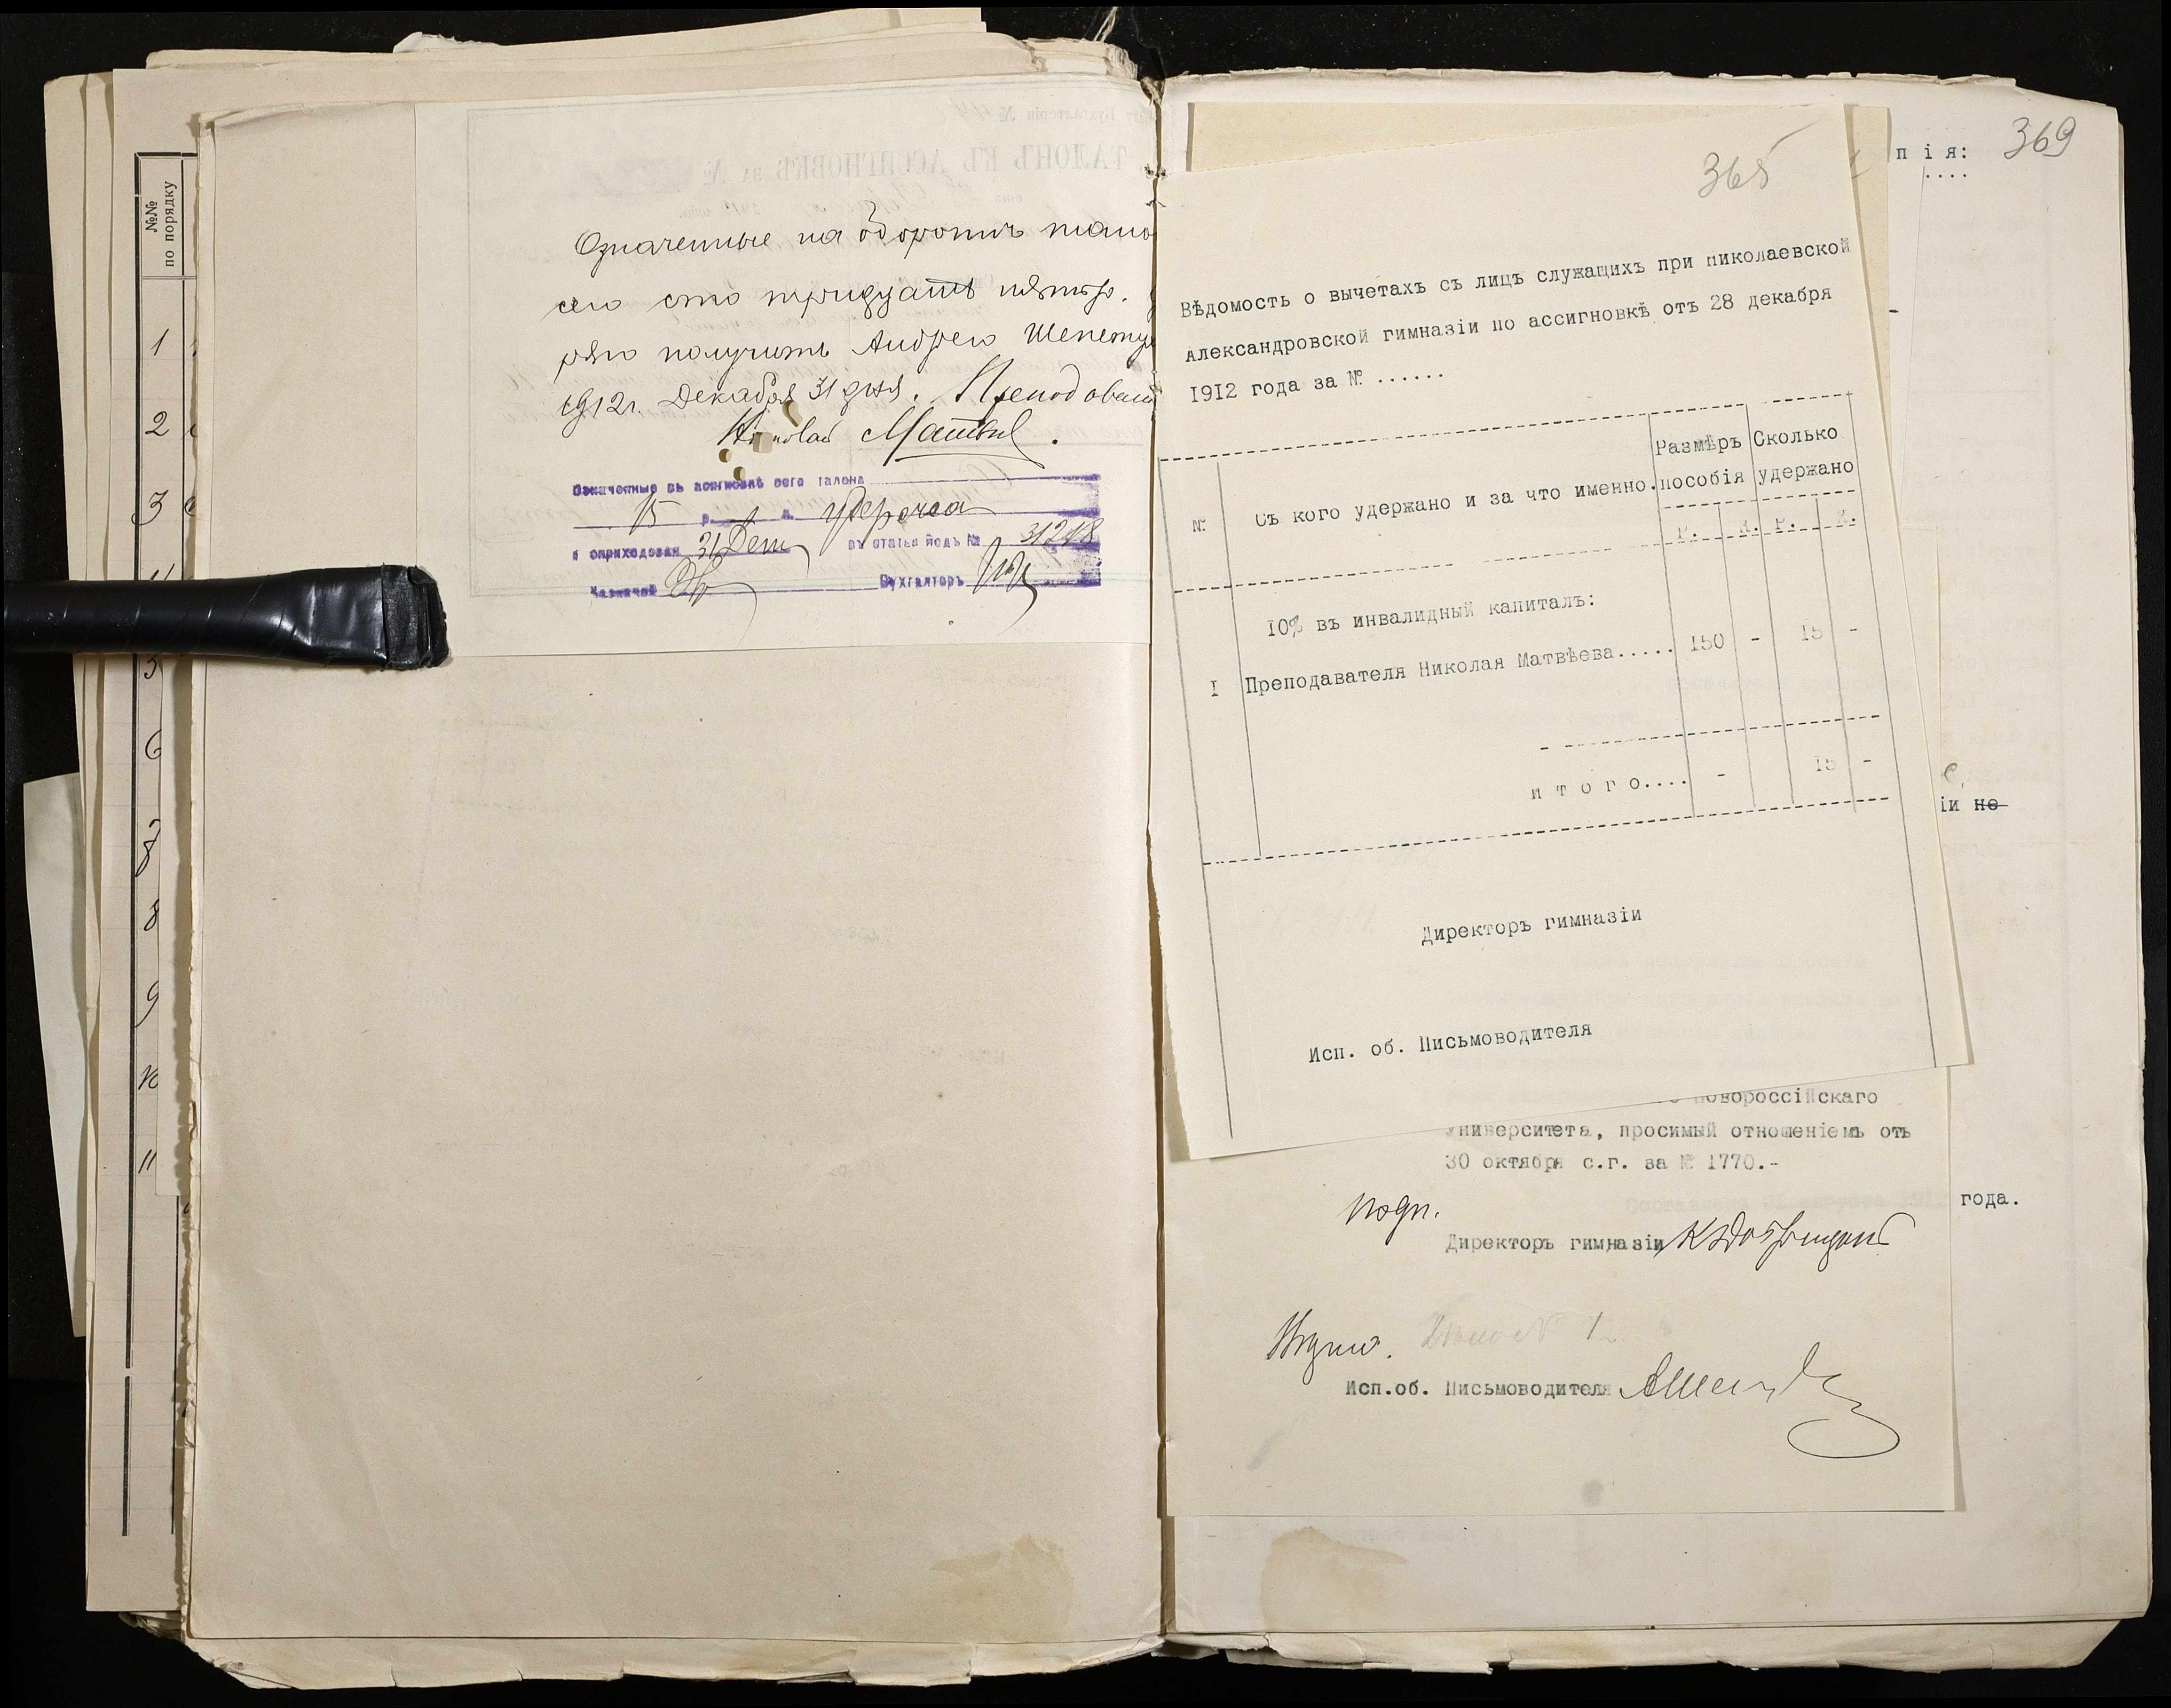 №№
по порядку
1
2
3
5
6
7
8
9
10
11
Означенные на обороте
сего сто тридцать пять р.
получить Андрею
1912 г. Декабря 31 дня.
Николай
Означенные въ ассигновкѣ сего талона
15 р. к.
и оприходован 31 Дек въ статьѣ подъ № 31218
Казначей Бухгалторъ
369
п і я:
....
365
Вѣдомость о вычетахъ съ лицъ служащихъ при николаевской
Александровской гимназіи по ассигновкѣ отъ 28 декабря
1912 года за № ......
№ Съ кого удержано и за что именно. Размѣръ пособія Сколько удержано
Р. К. Р. К.
10% въ инвалидный капиталъ:
I Преподавателя Николая Матвѣева..... 150 - 15 -
и т о г о.... - 15 -
Директоръ гимназіи
Исп. об. Письмоводителя
іи не
новороссійскаго
университета, просимый отношеніемъ отъ
30 октября с.г. за № 1770.-
года.
подп.
Директоръ гимназіи
Исп.об. Письмоводителя